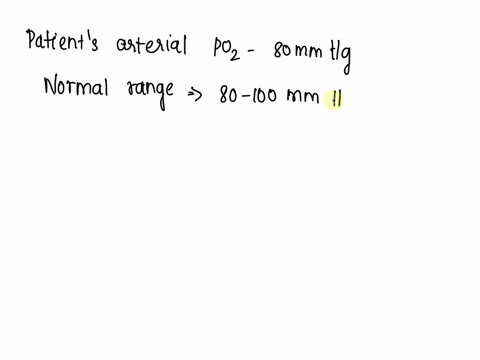 Patient's arterial PO2 - 80mm Hg
Normal range => 80-100 mm H